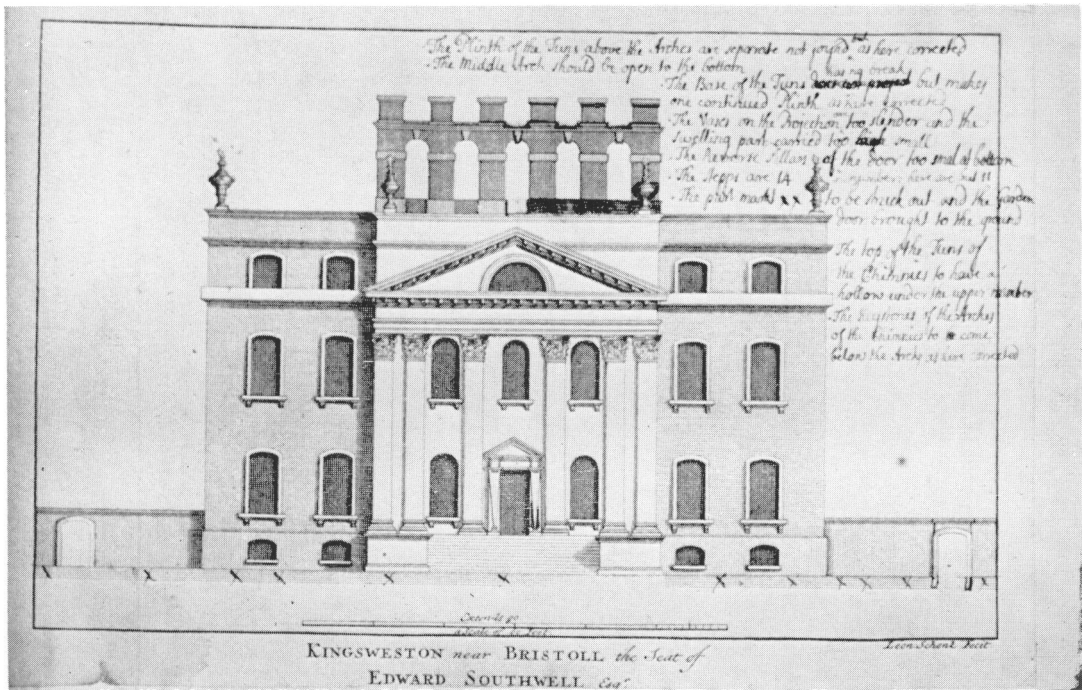 The Plinth of the Tuns above the Arches are separate not joyned but as here corrected
The Middle Arch should be open to the bottom
having break
The Base of the Tuns does not project but makes
one continued Plinth as here corrected
The Vases on the Projection too slender and the
swelling part carried too high small
The Reverse of the door too small at bottom
The Stepps are 14 have are but 11
The part markt x x to be struck out and the Garden
door brought to the ground
The top of the Tuns of
the Chimnies to have a
hollow under the upper member
The Keystones of the Arches
of the Chimnies to come
below the Arch as here corrected
a Scale of Feet
Leon Schenk Fecit
KINGSWESTON near BRISTOLL the Seat of
EDWARD SOUTHWELL Esqr.